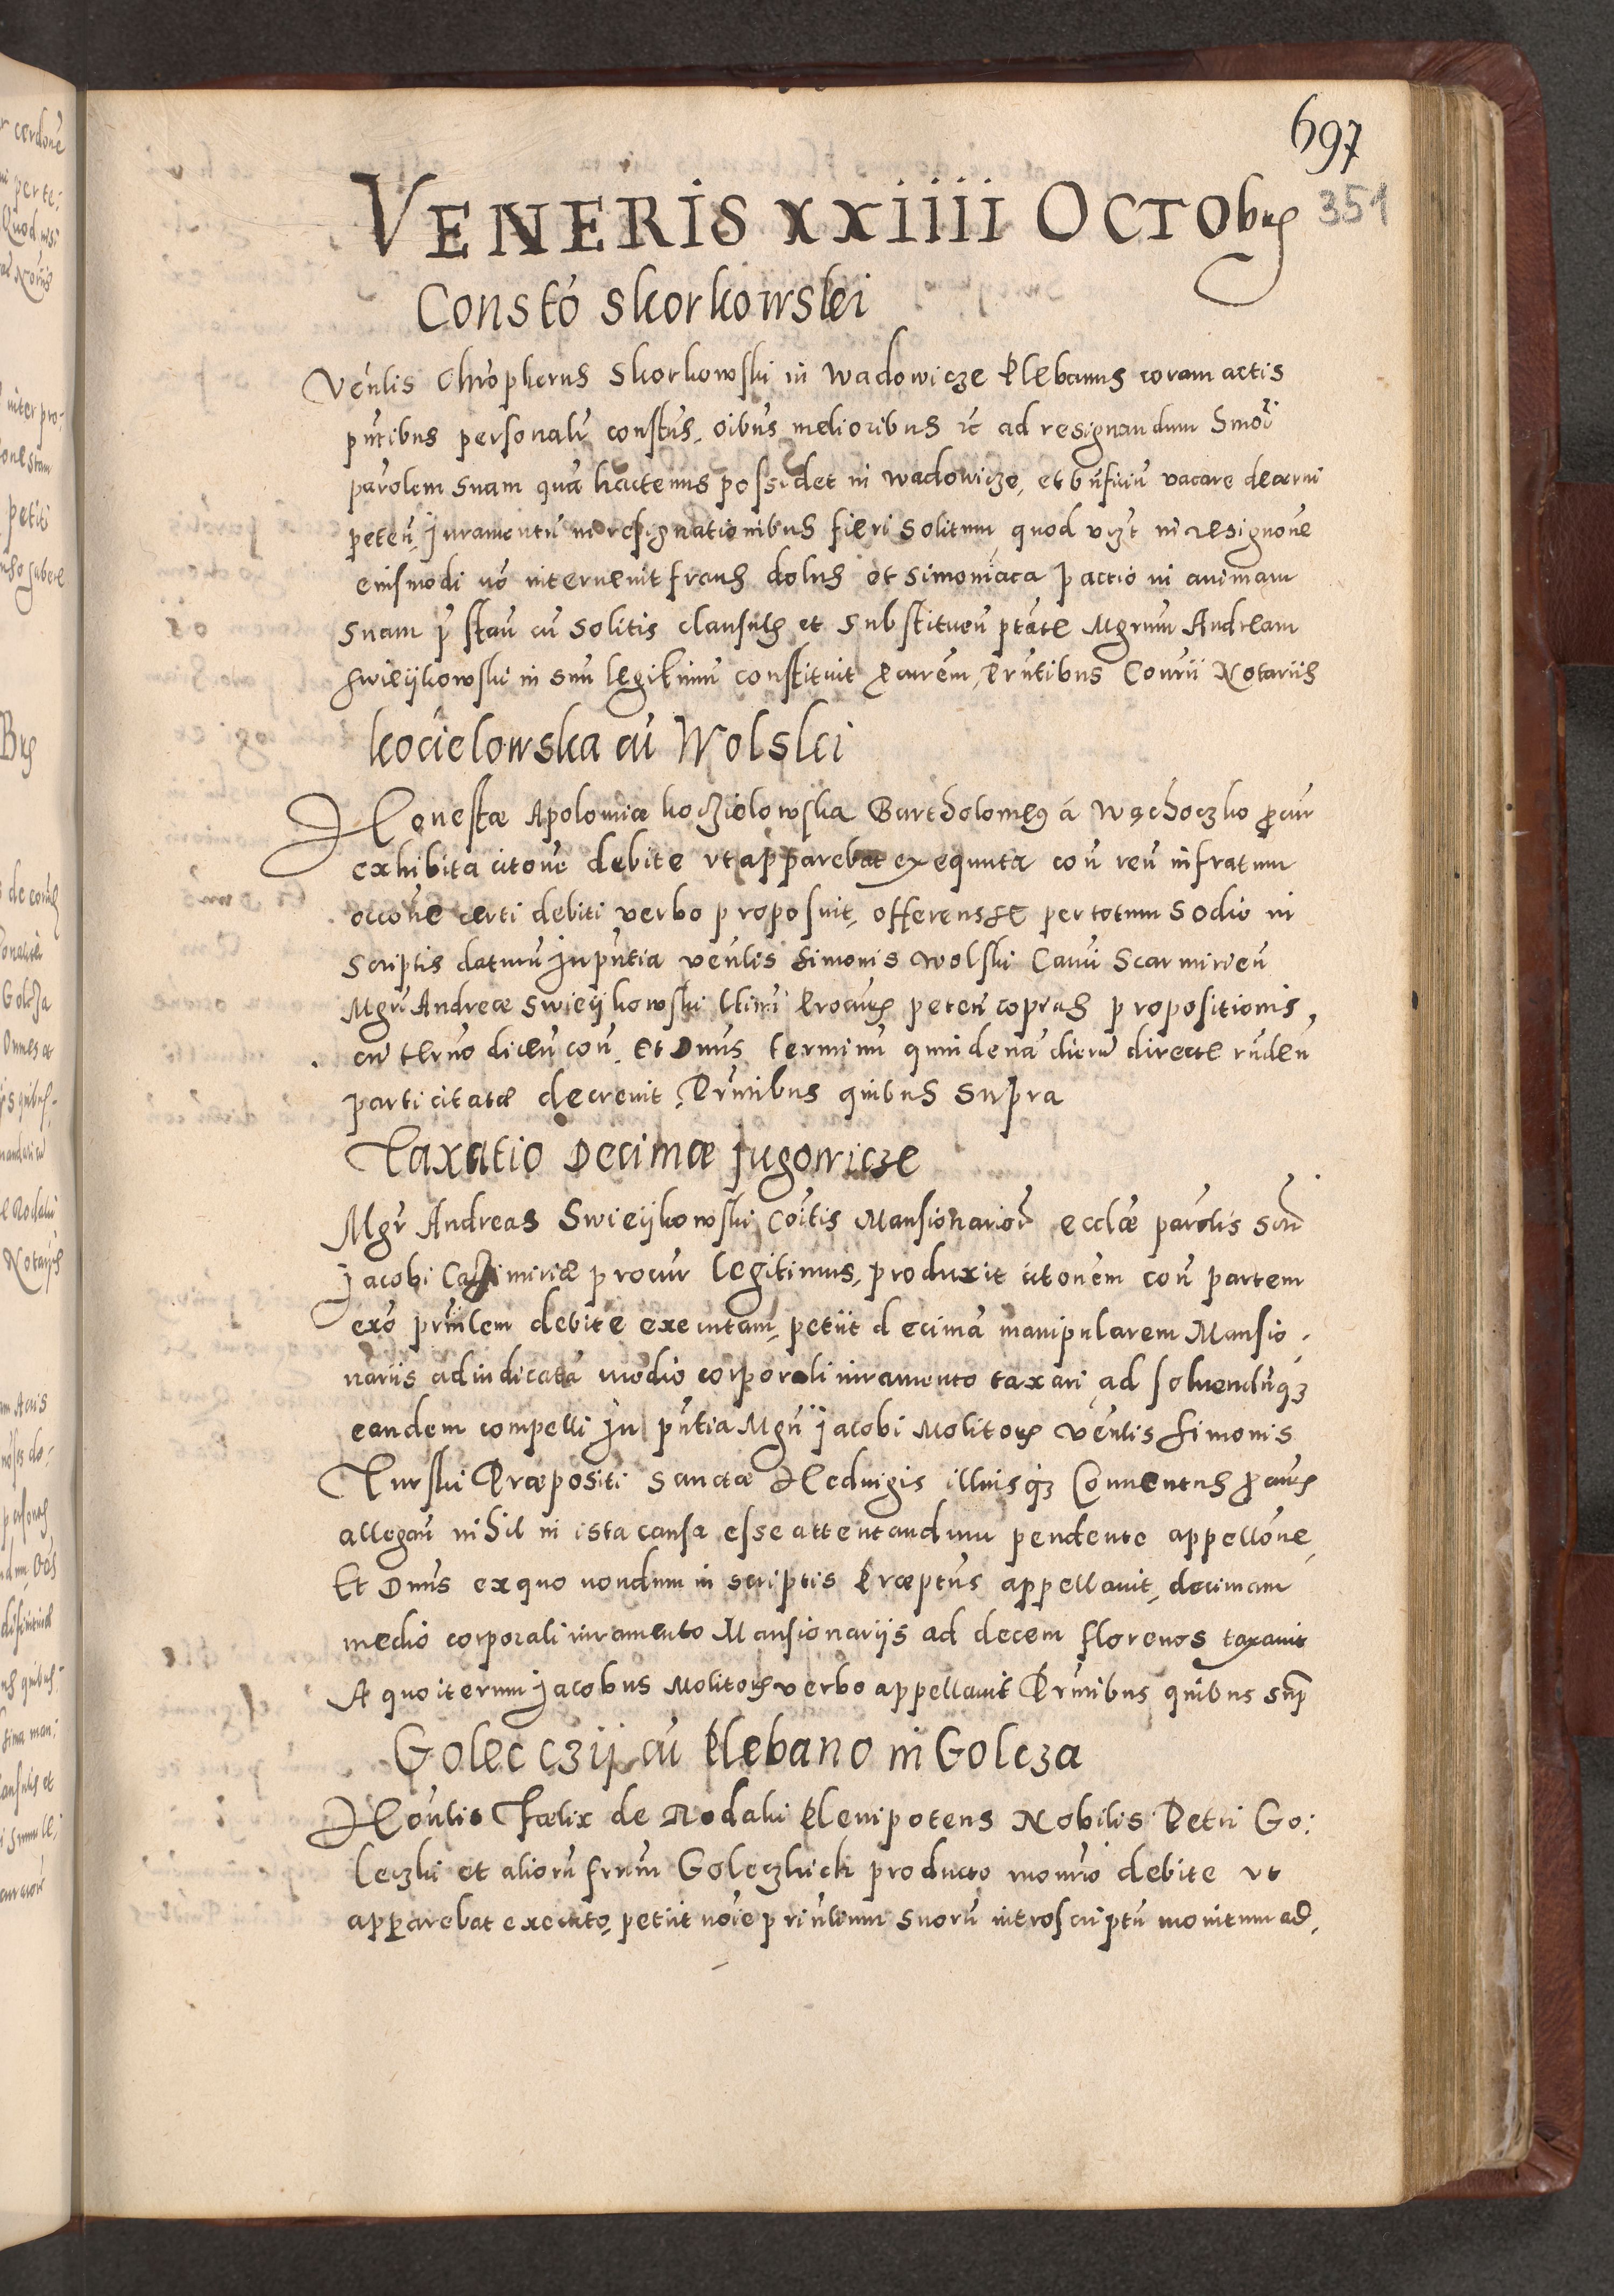 697
351
VENERIS XXIIII OCTObrs
Constō Skorkowski
Venlis Chrophorus Skorkowski in Wadowicze Plebanus coram actis
pntibus personalr constus, oibus melioribus etc ad resignandum
parolem suam quā hactenus possidet in Wadowicze, et bnficiū vacare decerni
peteñ, Juramentū in resignationibus fieri solitum, quod vizt in resignone
eiusmodi nō interuenit fraus dolus et simoniaca pactio in animam
suam pr̄stan̄ cū solitis clausulis et substituen̄ ptate Mgrum Andream
Swieijkowski in suū legitimū constituit procurem, Prntibus Conrii Notariis
Kocielowska cū Wolski
Honestæ Apoloniæ Kocziolowska Bartholomeus á Wąchoczko procur
exhibita citone debite vt apparebat exequuta con̄ reū infratum
occone certi debiti verbo proposuit, offerens se per totum hodie in
scriptis daturū In pn̄tia venlis Simonis Wolski Canci Scarmirien̄
Mgri Andreæ Swieijkowski llimi Procuris peten̄ copias propositionis,
cū termo dicen̄ con̄, Et Dnus terminū quindenā dierū directe rn̄den̄
parti citatæ decreuit, Prntibus quibus supra
Taxatio Decimæ Jugowicze
Mgr Andreas Swieijkowski Coitis Mansionarior̄ ecclæ parolis Scti
Jacobi Casimiriæ procur legitimus, produxit citonem con̄ partem
exō prn̄ilem debite executam, petiit decimā manipularem Mansio-
nariis adiudicatā medio corporali iuramento taxari ad soluendūqz
eandem compelli In pn̄tia Mgri Jacobi Molitoris Venlis Simonis
Turski Præpositi Sanctæ Hedvigis illiusqz Conuentus procuris
allegan̄ nihil in ista causa esse attentandum pendente appellone,
Et Dnus ex quo nondum in scriptis Præptus appellauit, decimam
medio corporali iuramento Mansionariis ad decem florenos taxauit
A quo iterum Jacobus Molitoris verbo appellauit Prntibus quibus sup
Golecczij cū Plebano in Golcza
Honlis Fælix de Rodaki Plenipotens Nobilis Petri Go:
leczki et aliorū frum Goleczkich producto monrio debite vt
apparebat executo, petiit noie prin̄lium suorū introscriptū monitum ad,